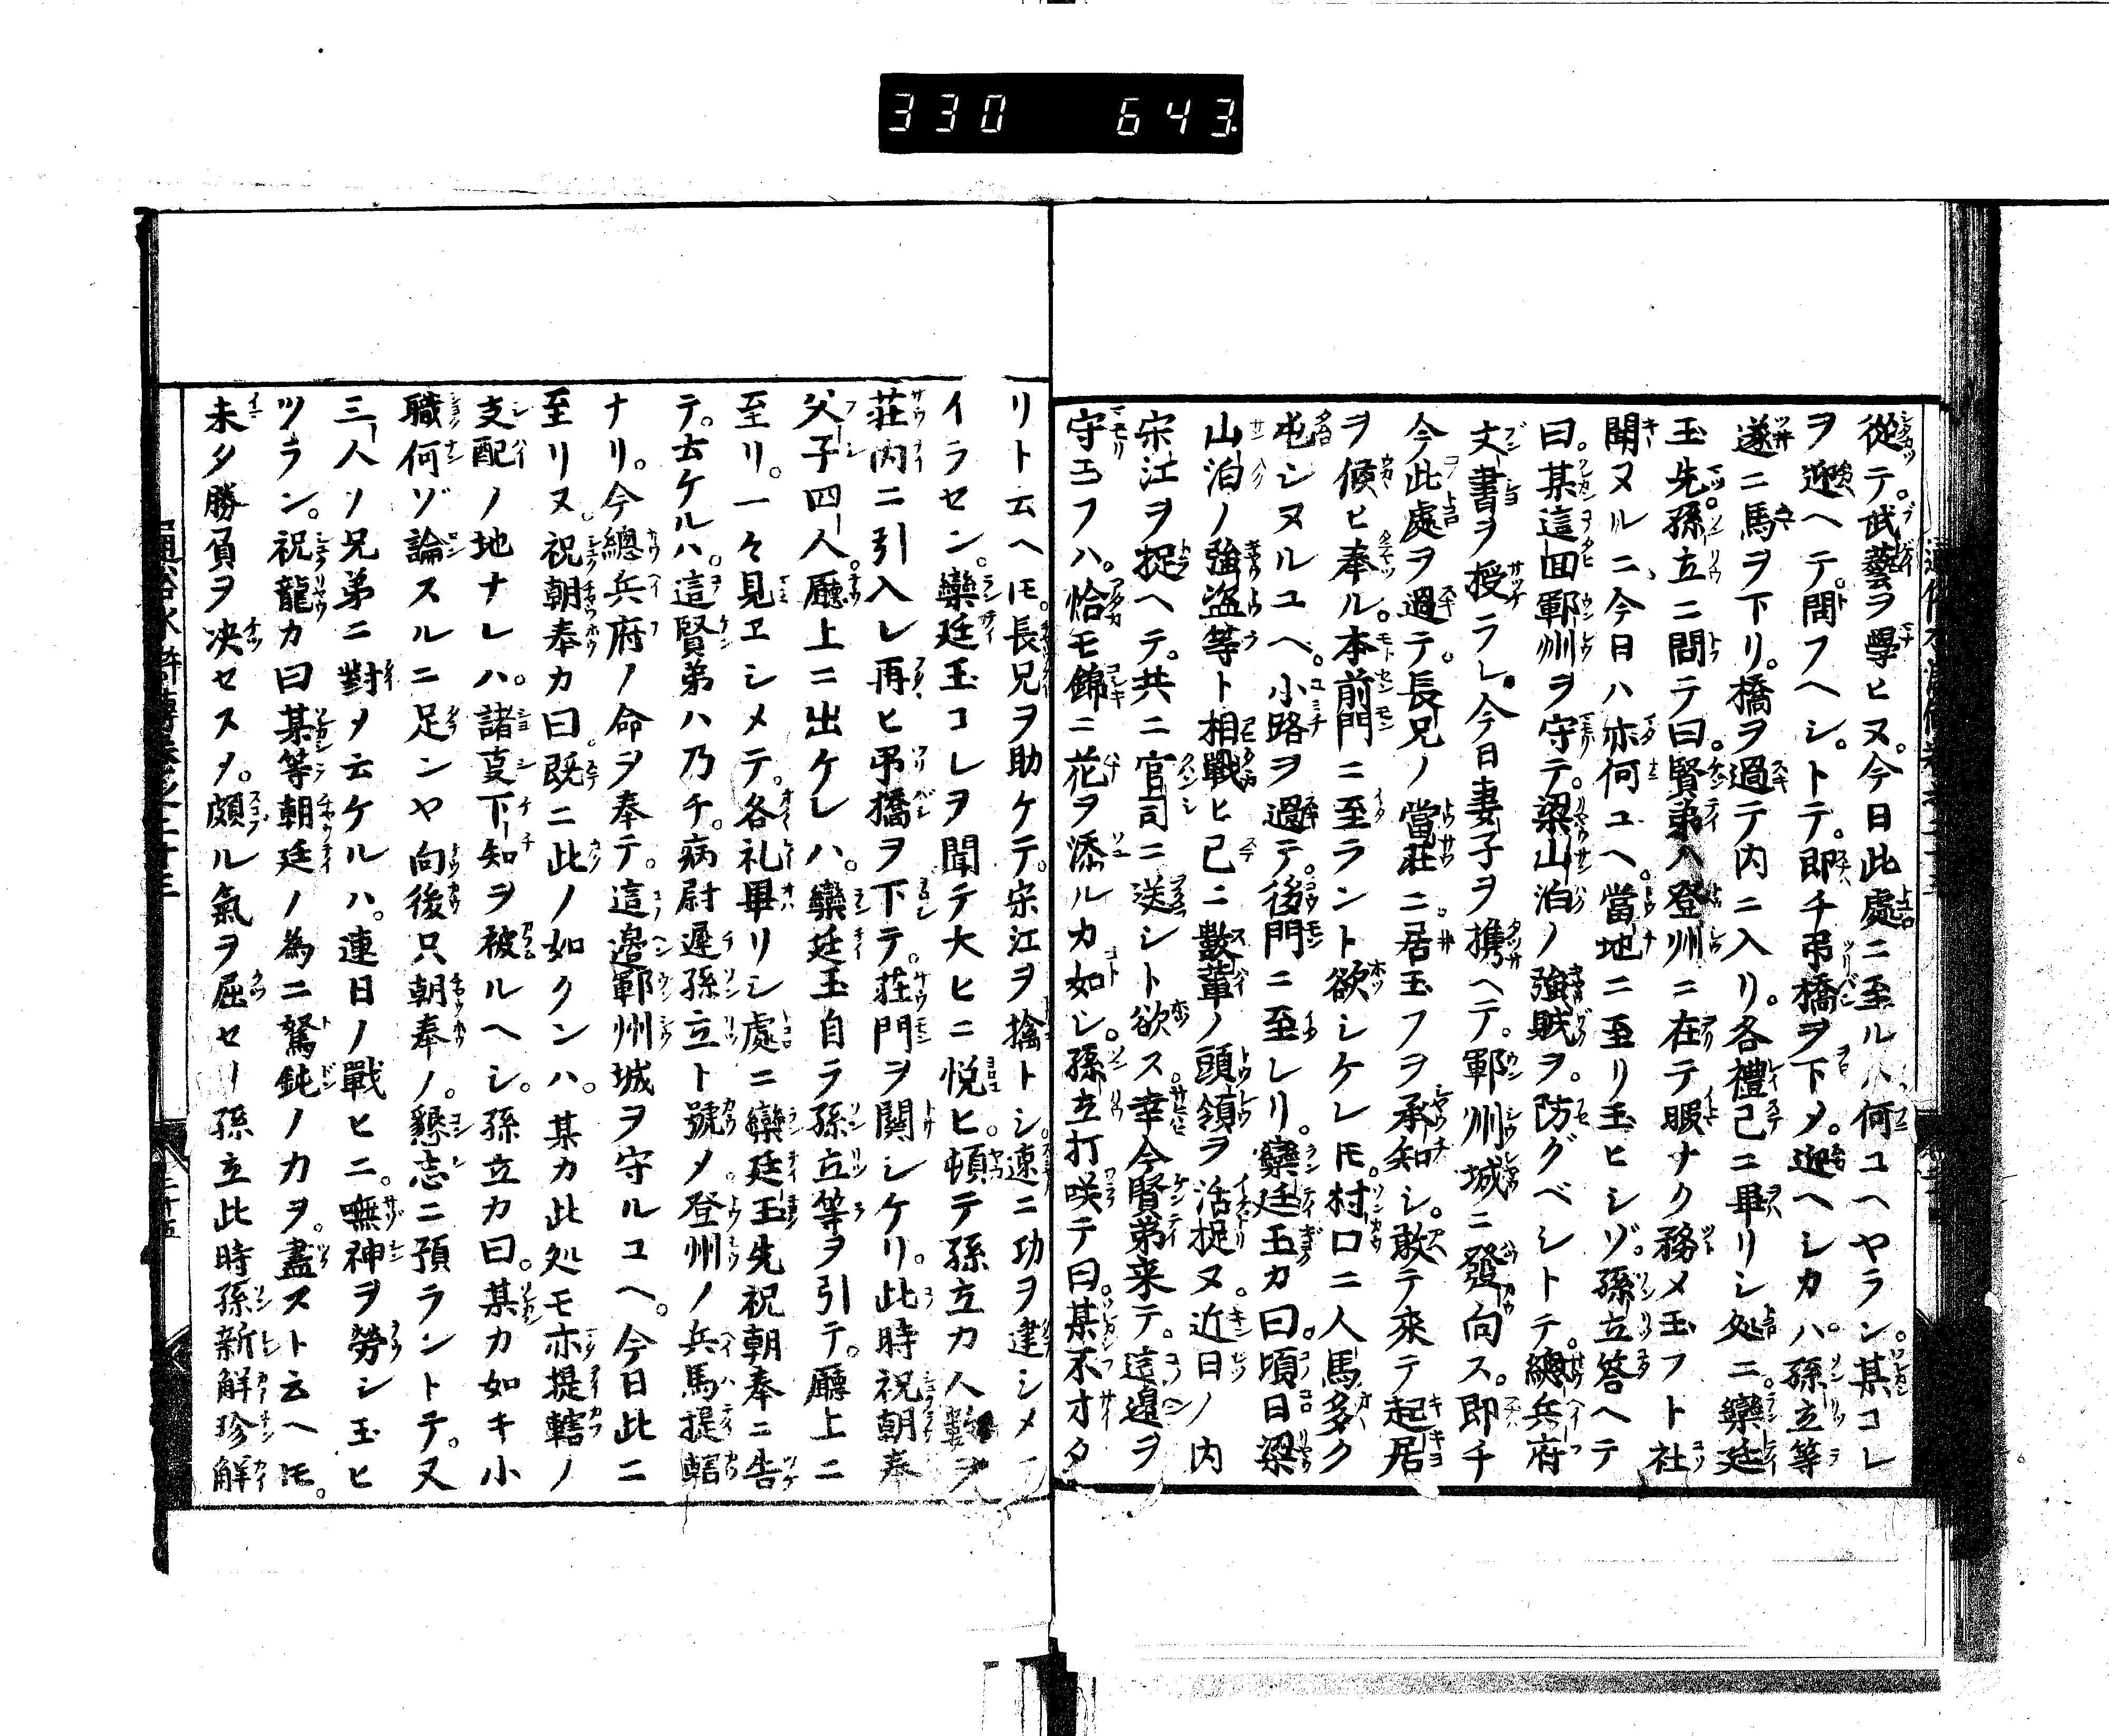 330 643.
從テ。武藝ヲ學ヒヌ。今日此處ニ至ルハ何ユヘヤラン。某コレ
ヲ迎ヘテ。問フヘシ。トテ。即チ弔橋ヲ下メ。迎ヘシカハ。孫立等
遂ニ馬ヲ下リ。橋ヲ過テ内ニ入リ。各禮已ニ畢リシ処ニ。欒廷
玉先。孫立ニ問テ曰。賢弟ハ登州ニ在テ暇ナク務メ玉フト社
聞ヌルニ、今日ハ亦何ユヘ。當地ニ至リ玉ヒシゾ。孫立答ヘテ
曰。某這回鄆州ヲ守テ。梁山泊ノ強賊ヲ。防グベシトテ。總兵府
文書ヲ授ラレ。今日妻子ヲ携ヘテ。鄆州城ニ發向ス。即チ
今此處ヲ過テ。長兄ノ當莊ニ。居玉フヲ承知シ。敢テ來テ起居
ヲ候ヒ奉ル。本前門ニ至ラント欲シケレ𪜈。村口ニ人馬多ク
屯シヌルユヘ。小路ヲ過テ。後門ニ至レリ。欒廷玉カ曰。頃日梁
山泊ノ強盗等ト相戰ヒ已ニ數輩ノ頭領ヲ活捉ヌ。近日ノ内
宋江ヲ捉ヘテ。共ニ官司ニ送シト欲ス。幸今賢弟来テ。這邉ヲ
守玉フハ。恰モ錦ニ花ヲ添ルカ如シ。孫立打咲テ曰。某不オタ
リト云ヘ𪜈。長兄ヲ助ケテ。宋江ヲ擒トシ。速ニ功ヲ建シメ
イラセン。欒廷玉コレヲ聞テ大ヒニ悦ヒ。頓テ孫立カ人數ヲ
莊内ニ引入レ再ヒ弔橋ヲ下テ。莊門ヲ関シケリ。此時祝朝奉
父子四人。廳上ニ出ケレハ。欒廷玉自ラ孫立等ヲ引テ。廳上ニ
至リ。一々見ヱシメテ。各礼畢リシ處ニ欒廷玉先祝朝奉ニ告
テ。云ケルハ。這賢弟ハ乃チ。病尉遲孫立ト號メ。登州ノ兵馬提轄
ナリ。今總兵府ノ命ヲ奉テ。這邉鄆州城ヲ守ルユヘ。今日此ニ
至リヌ。祝朝奉カ曰。既ニ此ノ如クンハ。某カ此処モ亦提轄ノ
支配ノ地ナレハ。諸夏下知ヲ被ルヘシ。孫立カ曰。某カ如キ小
職何ゾ論スルニ足ンヤ向後只朝奉ノ。懇志ニ預ラントテ。又
三人ノ兄弟ニ對メ云ケルハ。連日ノ戰ヒニ。嘸神ヲ勞シ玉ヒ
ツラン。祝龍カ曰某等朝廷ノ為ニ駑鈍ノカヲ。盡スト云ヘ𪜈。
未タ勝負ヲ决セスメ。頗ル氣ヲ屈セリ孫立此時孫新解珍解